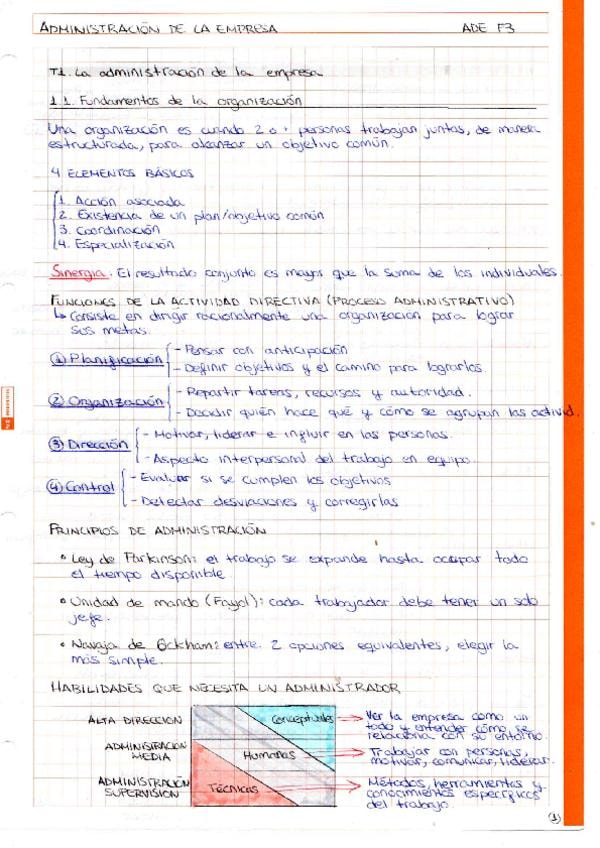 ADMINISTRACIÓN DE LA EMPRESA ADE F3
T1. La administración de la empresa
1.1. Fundamentos de la organización
Una organización es cuando 2 o + personas trabajan juntas, de manera
estructurada, para alcanzar un objetivo común.
4 ELEMENTOS BÁSICOS
1. Acción asociada
2. Existencia de un plan/objetivo común
3. Coordinación
4. Especialización
Sinergia: El resultado conjunto es mayor que la suma de los individuales.
FUNCIONES DE LA ACTIVIDAD DIRECTIVA (PROCESO ADMINISTRATIVO)
↳ Consiste en dirigir racionalmente una organización para lograr
sus metas.
① Planificación
- Pensar con anticipación
- Definir objetivos y el camino para lograrlos.
② Organización
- Repartir tareas, recursos y autoridad.
- Decidir quién hace qué y cómo se agrupan las activid.
③ Dirección
- Motivar, liderar e influir en las personas.
- Aspecto interpersonal del trabajo en equipo.
④ Control
- Evaluar si se cumplen los objetivos
- Detectar desviaciones y corregirlas
PRINCIPIOS DE ADMINISTRACIÓN
• Ley de Parkinson: el trabajo se expande hasta ocupar todo
el tiempo disponible.
• Unidad de mando (Fayol): cada trabajador debe tener un solo
jefe.
• Navaja de Ockham: entre 2 opciones equivalentes, elegir la
más simple.
HABILIDADES QUE NECESITA UN ADMINISTRADOR
ALTA DIRECCIÓN Conceptuales → Ver la empresa como un
todo y entender cómo se
relaciona con su entorno.
ADMINISTRACIÓN
MEDIA Humanas → Trabajar con personas,
motivar, comunicar, liderar.
ADMINISTRACIÓN
SUPERVISIÓN Técnicas → Métodos, herramientas y
conocimientos específicos
del trabajo.
①